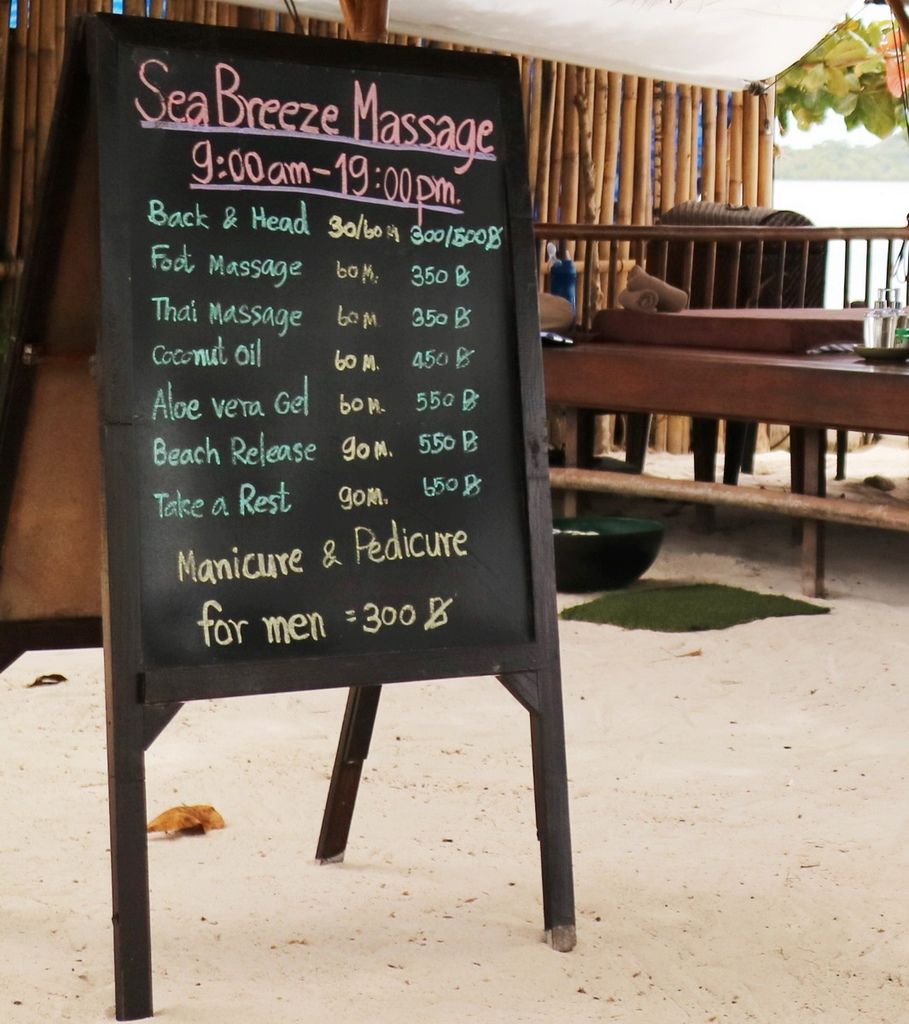 Sea Breeze Massage
9:00am-19:00pm.
Back & Head 30/60 M 300/500฿
Foot Massage 60 M. 350 ฿
Thai Massage 60 M. 350 ฿
Coconut Oil 60 M. 450 ฿
Aloe vera Gel 60 M. 550 ฿
Beach Release 90 M. 550 ฿
Take a Rest 90 M. 650 ฿
Manicure & Pedicure
for men = 300 ฿